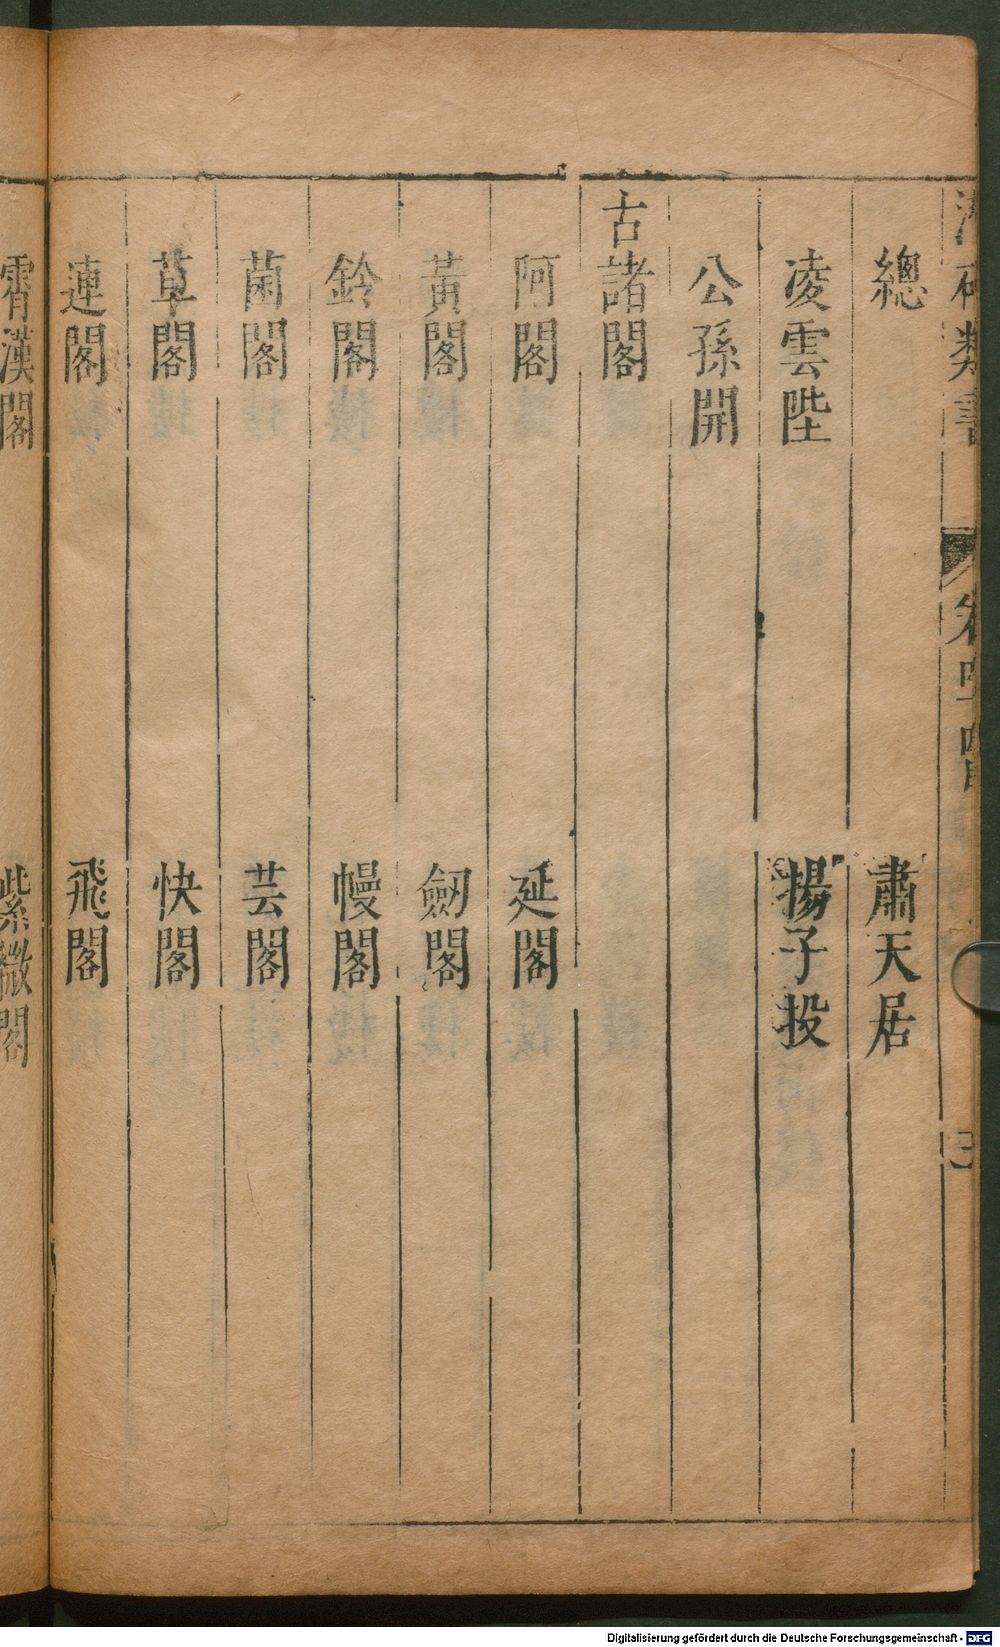 類書
卷
總 肅天居
凌雲陛 揚子投
公孫開
古諸閣
阿閣 延閣
黃閣 劒閣
鈴閣 幔閣
菌閣 芸閣
草閣 快閣
連閣 飛閣
霄漢閣 紫微閣
Digitalisierung gefördert durch die Deutsche Forschungsgemeinschaft - DFG